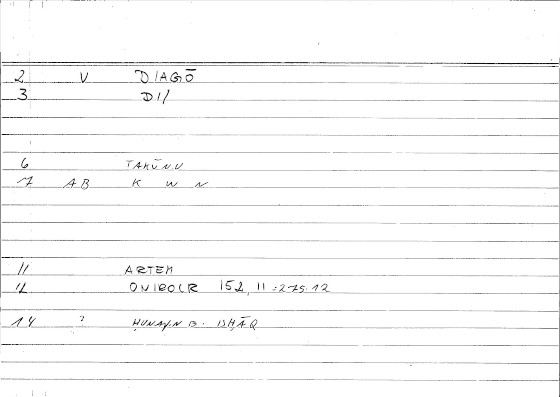 2 V DIAGŌ
3 DI/
6 TAKŪNU
7 AB K W N
11 ARTEM
12 ONIROCR 152, 11 = 275.12
14 ? ḤUNAYN B. ISḤĀQ